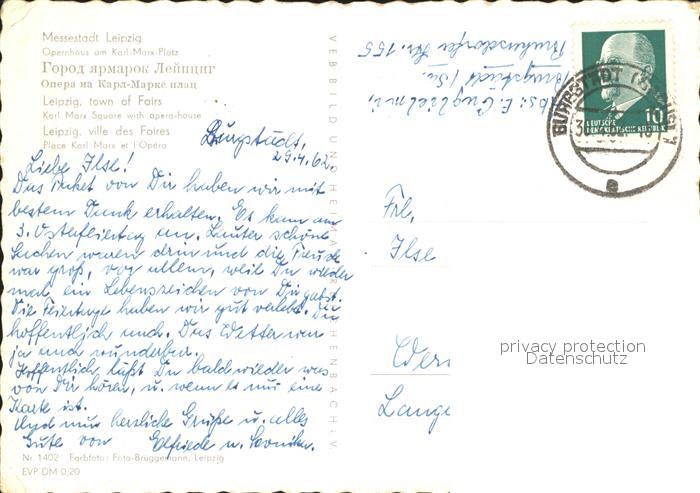 Messestadt Leipzig
Opernhaus am Karl-Marx-Platz
Город ярмарок Лейпциг
Опера на Карл-Маркс плац
Leipzig, town of Fairs
Karl Marx Square with opera-house
Leipzig, ville des Foires
Place Karl Marx et l'Opéra
Burgstädt,
29.4.62.
Liebe Ilse!
Das Paket von Dir haben wir mit
bestem Dank erhalten. Es kam am
3. Osterfeiertag an. Lauter schöne
Sachen waren drin und die Freude
war groß, vor allem, weil Du wieder
mal ein Lebenszeichen von Dir gabst.
Die Feiertage haben wir gut verlebt. Du
hoffentlich auch. Das Wetter war
ja auch wunderbar.
Hoffentlich läßt Du bald wieder was
von Dir hören, u. wenn es nur eine
Karte ist.
Und nun herzliche Grüße u. alles
Gute von Elfriede u.
Nr. 1402 Farbfoto: Foto-Brüggemann, Leipzig
EVP DM 0,20
VEB BILD UND HEIMAT REICHENBACH I. V.
Abs: E. Guglielmi,
Burgstädt / Sa.
Str. 155
10
DEUTSCHE
DEMOKRATISCHE REPUBLIK
BURGSTÄDT
e
Frl.
Ilse
Wer
Lange
privacy protection
Datenschutz